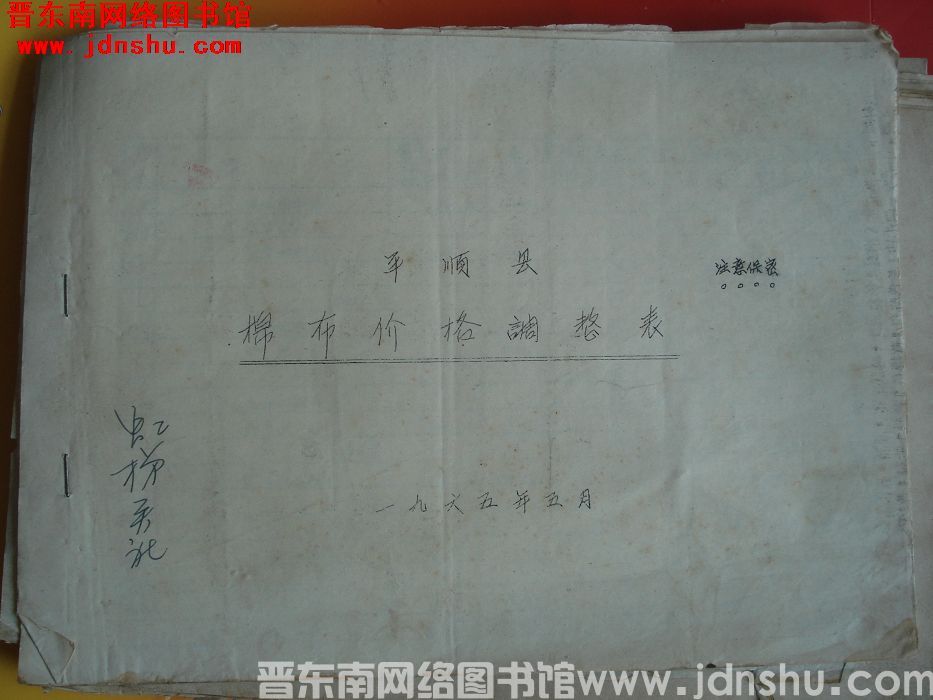 晋东南网络图书馆
www.jdnshu.com
平顺县
注意保密
棉布价格調整表
虹梯关社
一九六五年五月
晋东南网络图书馆 www.jdnshu.com